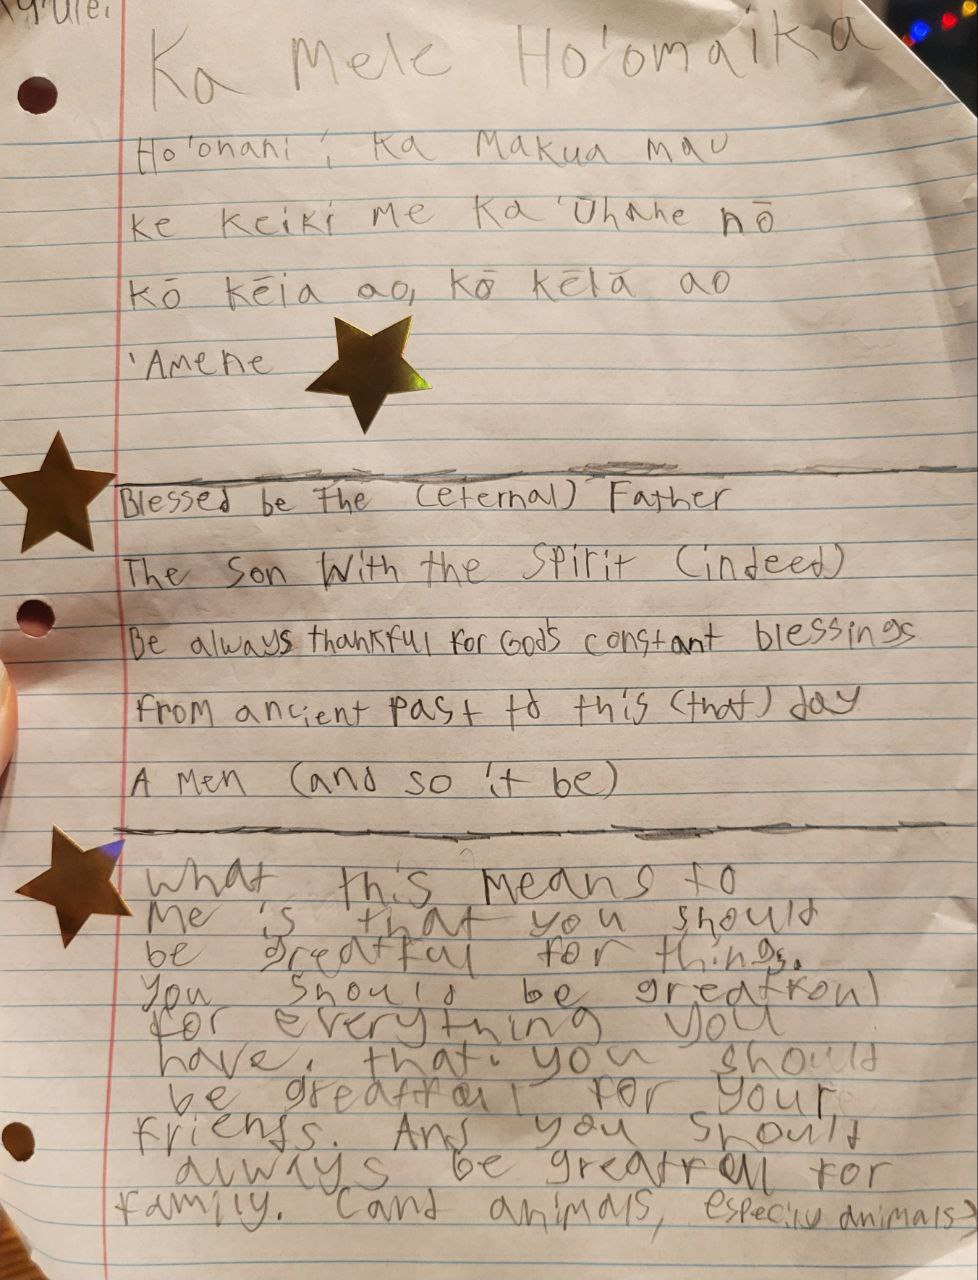 Ka Mele Ho'omaika
Ho'onani i Ka Makua mau
ke keiki me ka 'Ūhane nō
kō kēia ao, kō kēlā ao
'Amene
Blessed be The (eternal) Father
The Son With the Spirit (indeed)
Be always thankful for God's constant blessings
From ancient past to this (that) day
A Men (and so it be)
What this means to
Me is that you should
be greatful for things.
You should be greatfoul
for everything you
have. that. you should
be greatfoul for your
friends. And you should
always be greatfoul for
family. (and animals, especily animals)